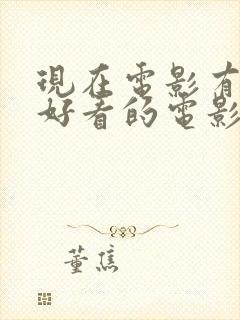 現在電影有
好看的電影
董焦